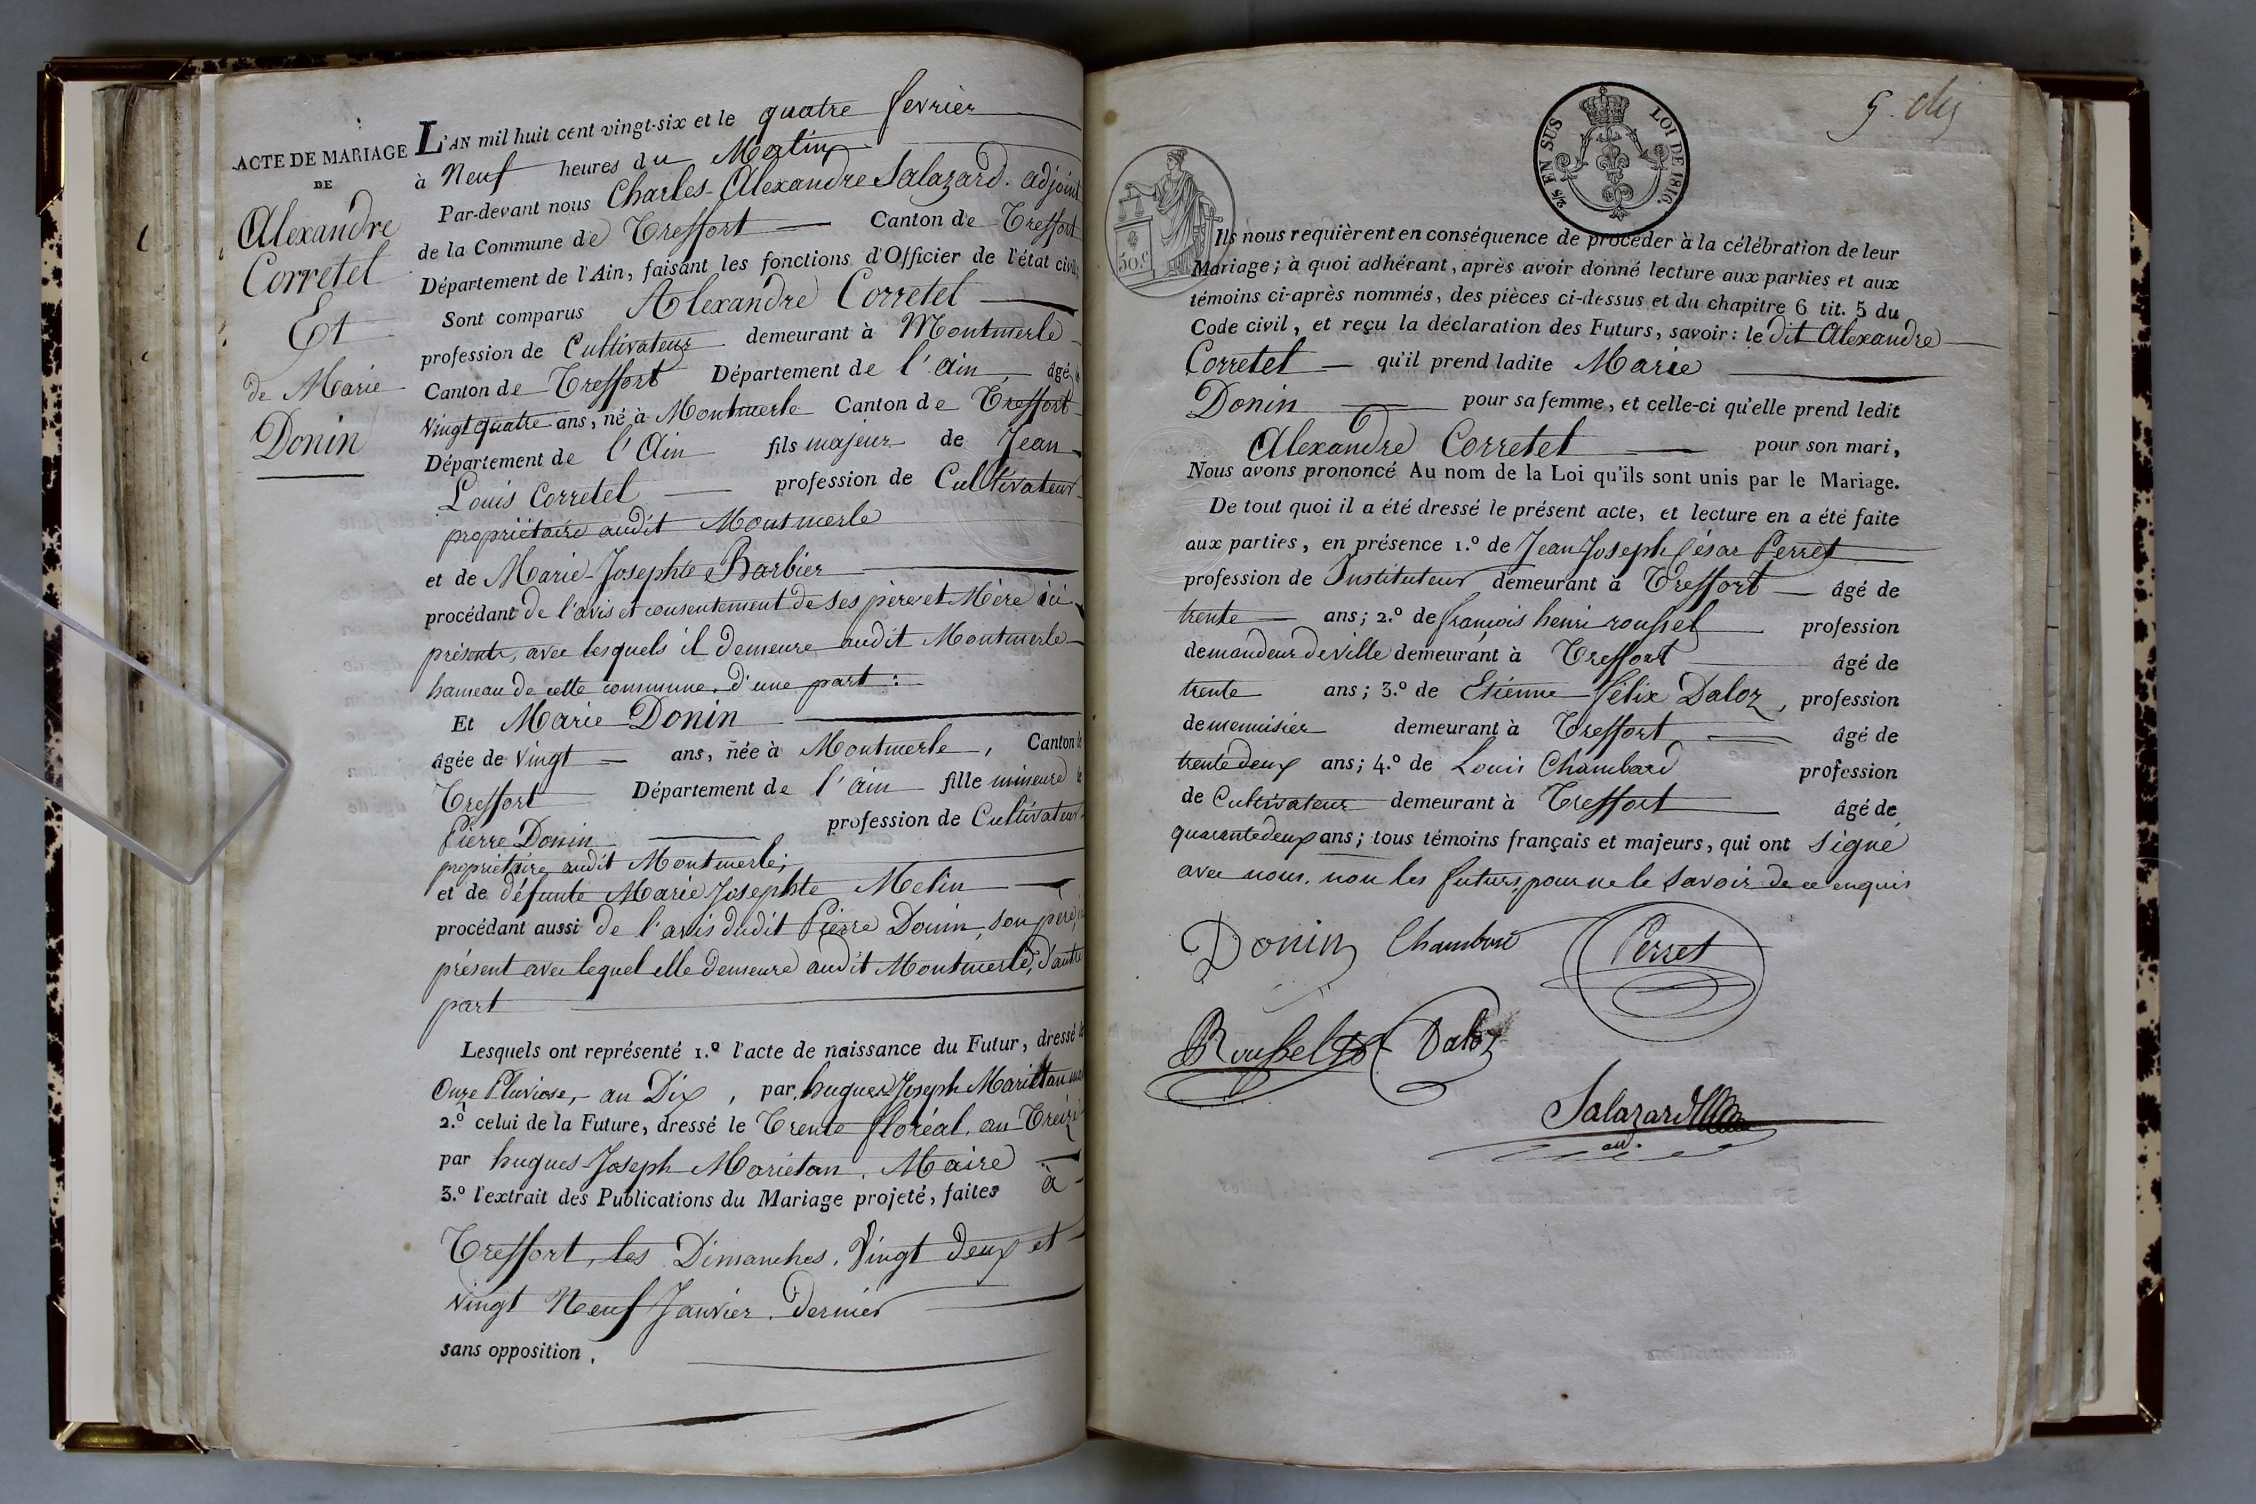 ACTE DE MARIAGE
DE
Alexandre
Corretel
Et
de Marie
Donin
L'AN mil huit cent vingt-six et le quatre fevrier
à Neuf heures du Matin
Par-devant nous Charles-Alexandre Salazard. adjoint
de la Commune de Treffort Canton de Treffort
Département de l'Ain, faisant les fonctions d'Officier de l'état civil,
Sont comparus Alexandre Corretel
profession de Cultivateur demeurant à Montmerle
Canton de Treffort Département de l'ain âgé
vingt quatre ans, né à Montmerle Canton de Treffort
Département de l'Ain fils majeur de Jean
Louis Corretel profession de Cultivateur
propriétaire audit Montmerle
et de Marie-Josephte Barbier
procédant de l'avis et consentement de ses père et Mère ici
présents, avec lesquels il demeure audit Montmerle
hameau de cette commune, d'une part :
Et Marie Donin
âgée de vingt ans, née à Montmerle, Canton de
Treffort Département de l'ain fille mineure de
Pierre Donin profession de Cultivateur
propriétaire audit Montmerle;
et de défunte Marie Josephte Melin
procédant aussi de l'avis dudit Pierre Donin, son père,
présent avec lequel elle demeure audit Montmerle, d'autre
part
Lesquels ont représenté 1.º l'acte de naissance du Futur, dressé le
Onze Pluviose, an Dix, par hugues Joseph Marietan
2.º celui de la Future, dressé le Trente floréal, an Treize
par hugues-Joseph Marietan, Maire
3.º l'extrait des Publications du Mariage projeté, faites à
Treffort, les Dimanches, Vingt deux et
vingt Neuf Janvier, dernier
sans opposition.
2/5 EN SUS
LOI DE 1816.
50.c
Ils nous requièrent en conséquence de procéder à la célébration de leur
Mariage; à quoi adhérant, après avoir donné lecture aux parties et aux
témoins ci-après nommés, des pièces ci-dessus et du chapitre 6 tit. 5 du
Code civil, et reçu la déclaration des Futurs, savoir: le dit Alexandre
Corretel qu'il prend ladite Marie
Donin pour sa femme, et celle-ci qu'elle prend ledit
Alexandre Corretel pour son mari,
Nous avons prononcé Au nom de la Loi qu'ils sont unis par le Mariage.
De tout quoi il a été dressé le présent acte, et lecture en a été faite
aux parties, en présence 1.º de Jean Joseph César Perret
profession de Instituteur demeurant à Treffort âgé de
trente ans; 2.º de françois henri roussel profession
de mandeur de ville demeurant à Treffort âgé de
trente ans; 3.º de Etienne félix Daloz, profession
de menuisier demeurant à Treffort, âgé de
trente deux ans; 4.º de Louis Chambard profession
de Cultivateur demeurant à Treffort âgé de
quarante deux ans; tous témoins français et majeurs, qui ont signé
avec nous, non les futurs, pour ne le savoir de ce enquis
Donin Chambard Perret
Roussel Daloz
Salazard
adj.